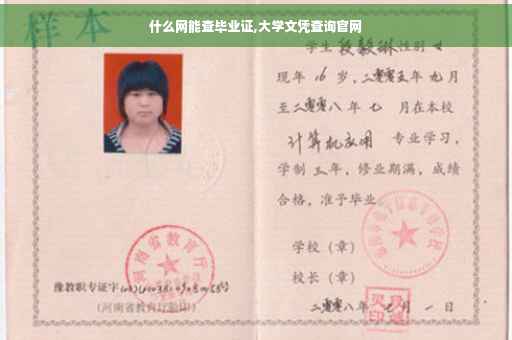 什么网能查毕业证,大学文凭查询官网
样本
学生段毅琳性别女
现年 16 岁,二零零五年 九 月
至二零零八 年 七 月在本校
计算机应用 专业学习,
学制 三 年,修业期满,成绩
合格,准予毕业
学校(章)
校长(章)
二零零八年 月 一 日
河南省教育厅
豫教职专证字
(河南省教育厅验印)